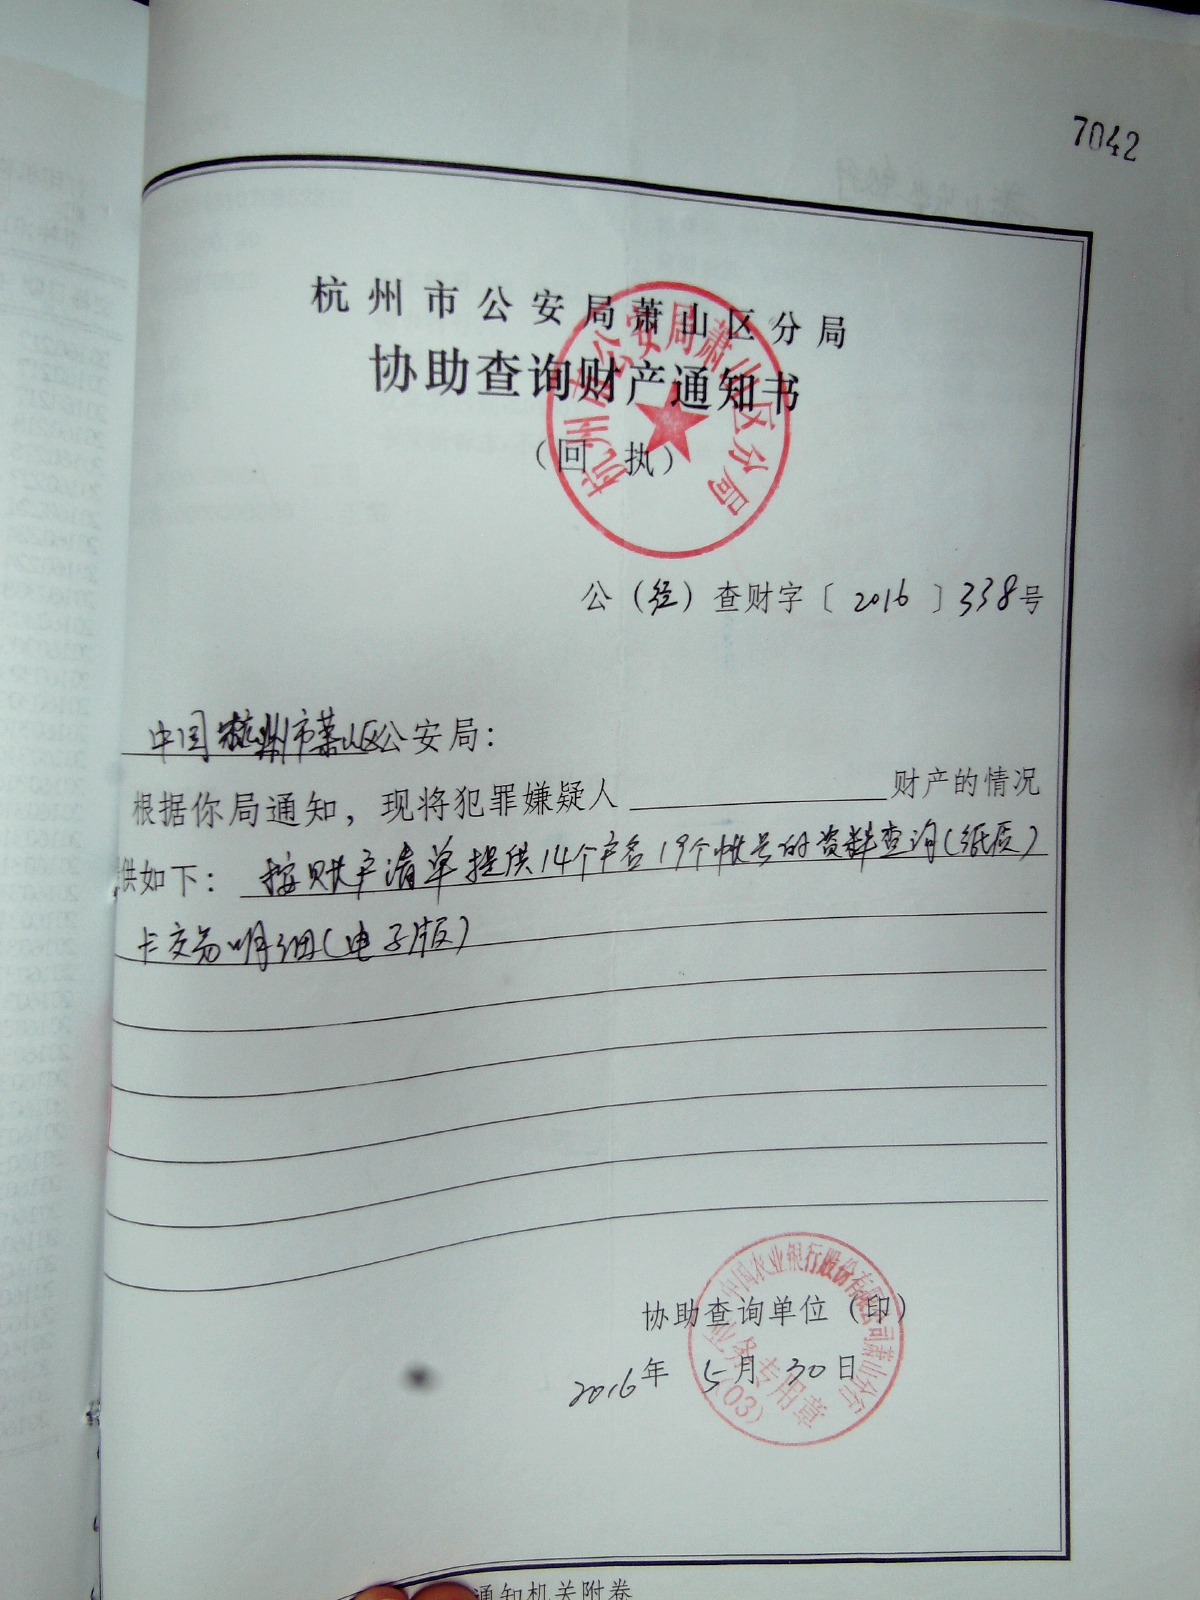 7042
杭州市公安局萧山区分局
协助查询财产通知书
（回 执）
杭州市公安局萧山区分局
公（经）查财字〔 2016 〕338号
中国杭州市萧山区公安局：
根据你局通知，现将犯罪嫌疑人 财产的情况
供如下：按账户清单提供14个户名19个帐号的资料查询（纸质）
卡交易明细（电子版）
协助查询单位（印）
2016年 5月 30日
中国农业银行股份有限公司萧山分行
业务专用章
(03)
通知机关附卷